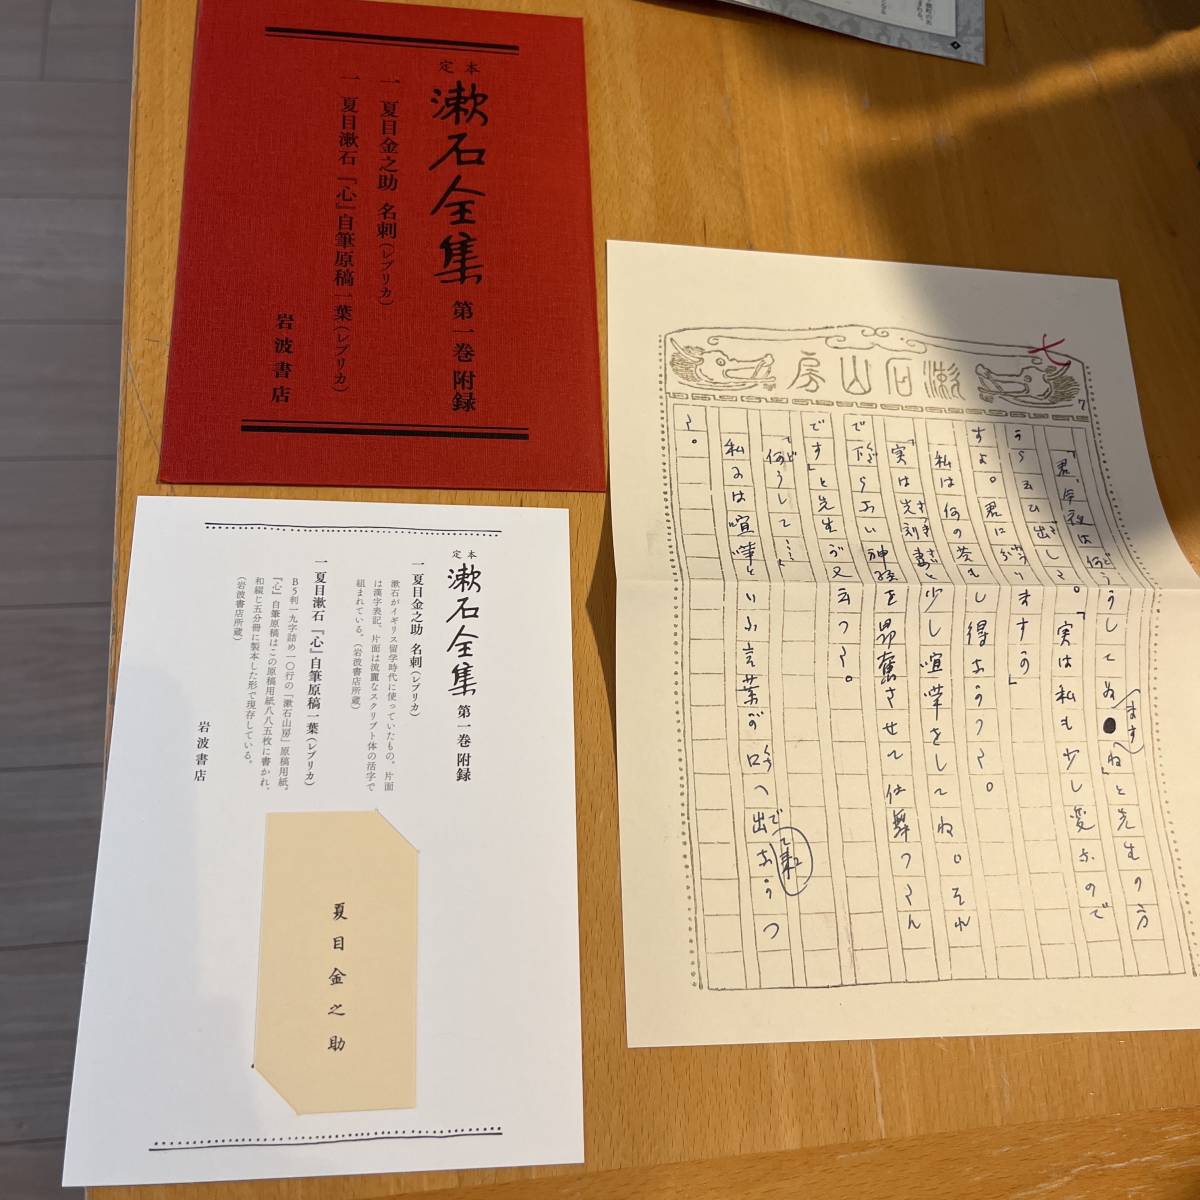 定本
漱石全集 第一巻 附録
一 夏目金之助 名刺(レプリカ)
一 夏目漱石『心』自筆原稿一葉(レプリカ)
岩波書店
定本
漱石全集 第一巻 附録
一 夏目金之助 名刺(レプリカ)
漱石がイギリス留学時代に使っていたもの。片面
は漢字表記、片面は流麗なスクリプト体の活字で
組まれている。(岩波書店所蔵)
一 夏目漱石『心』自筆原稿一葉(レプリカ)
B5判一九字詰め一〇行の「漱石山房」原稿用紙。
『心』自筆原稿はこの原稿用紙八八五枚に書かれ、
和綴じ五分冊に製本した形で現存している。
(岩波書店所蔵)
岩波書店
夏目金之助
漱石山房
七
7
「君、今夜は何うかしてゐますね」と先生の方
から云ひ出した。「実は私も少し変なので
すよ。君に分りますか」
私は何の答もし得なかつた。
「実は先刻妻と少し喧嘩をしてね。それ
で下らない神経を昂奮させて仕舞つたん
です」と先生が又云つた。
「何うして……」
私には喧嘩といふ言葉が口へ出て来なかつ
た。